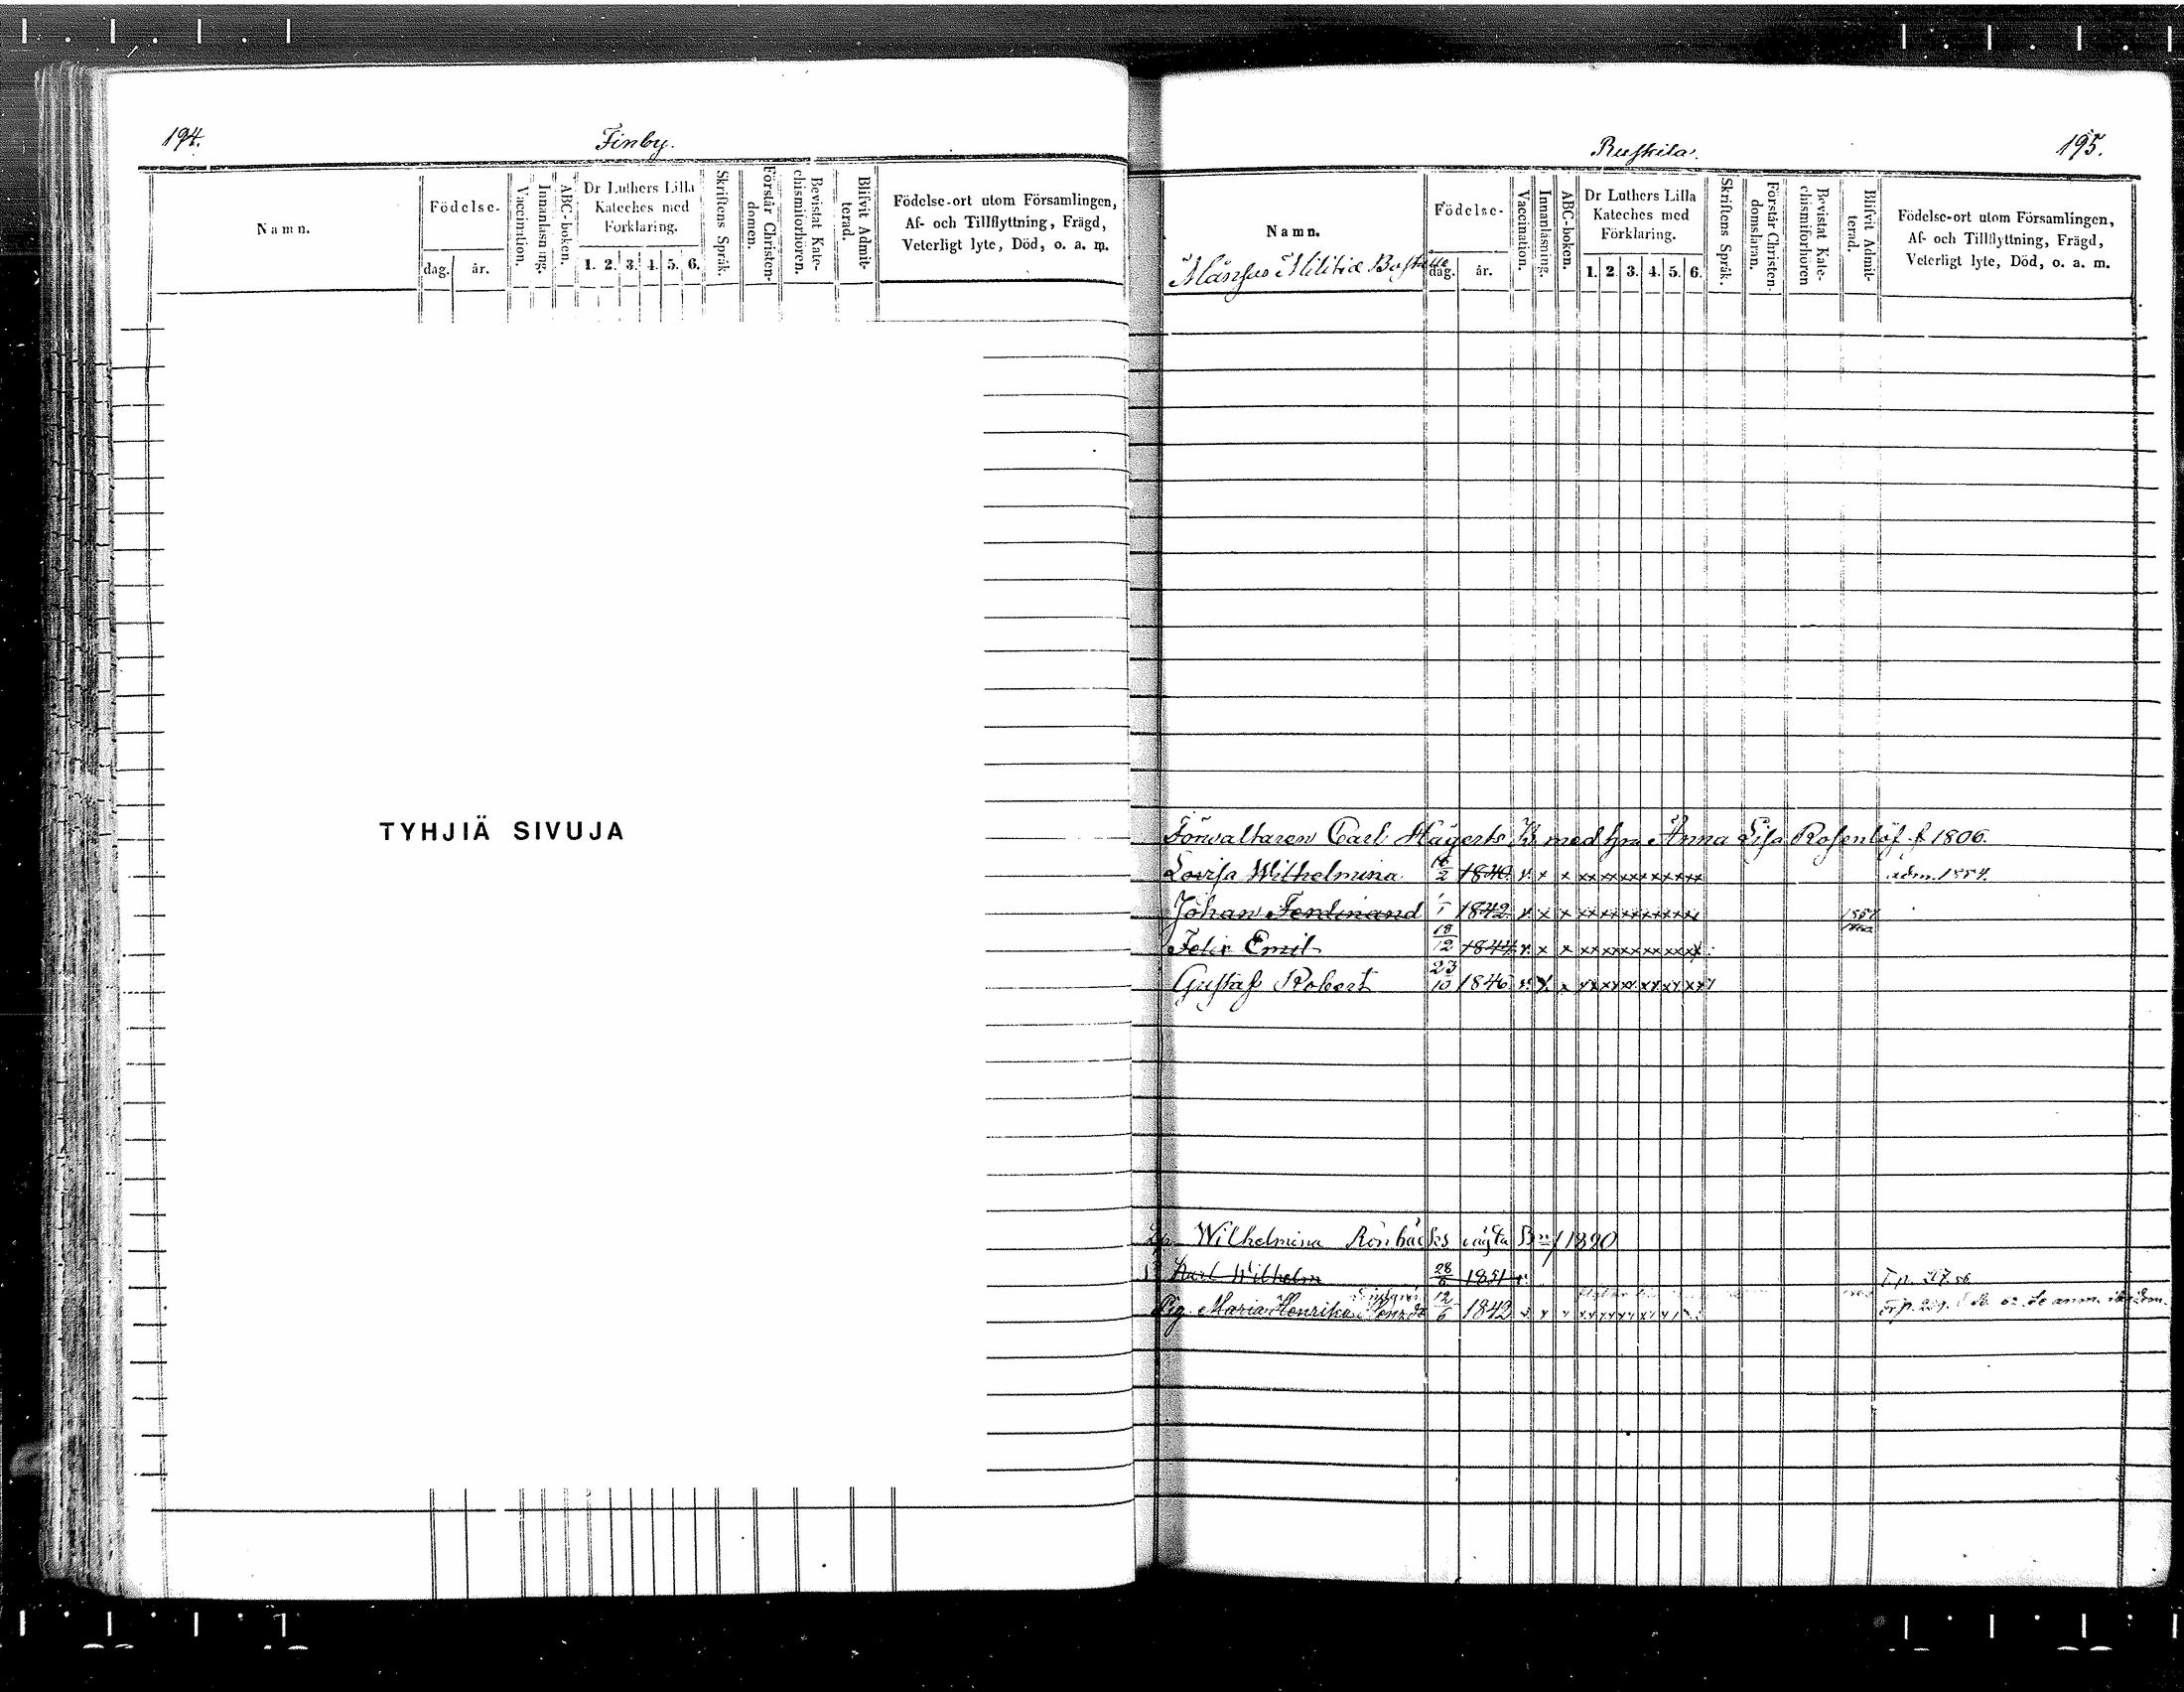 194.
Finby.
Namn.
Födelse-
dag.
år.
Vaccination.
Innanläsning.
ABC-boken.
Dr Luthers Lilla
Kateches med
Förklaring.
1. 2. 3. 4. 5. 6.
Skriftens Språk.
Förstår Christen-
domen.
Bevistat Kate-
chismiförhören.
Blifvit Admit-
terad.
Födelse-ort utom Församlingen,
Af- och Tillflyttning, Frägd,
Veterligt lyte, Död, o. a. m.
TYHJIÄ SIVUJA
Ruskila.
195.
Namn.
Månsus Militiæ Boställe
Födelse-
dag.
år.
Vaccination.
Innanläsning.
ABC-boken.
Dr Luthers Lilla
Kateches med
Förklaring.
1. 2. 3. 4. 5. 6.
Skriftens Språk.
Förstår Christen-
domsläran.
Bevistat Kate-
chismiförhören
Blifvit Admit-
terad.
Födelse-ort utom Församlingen,
Af- och Tillflyttning, Frägd,
Veterligt lyte, Död, o. a. m.
Förvaltaren Carl Hägerts B. med hu Anna Lisa Rosenlöf f. 1806.
Lovisa Wilhelmina 18/2 1840 v. x x xx xx xx xx xx xx adm. 1854.
Johan Ferdinand 1/1 1842 v. x x xx xx xx xx xx xx
Felix Emil 18/12 1844 v. x x xx xx xx xx xx xx
Gustaf Robert 23/10 1846 v. x x xx xx xx xx xx xx
Wilhelmina Rönbäcks oägta B 1820
Karl Wilhelm 28/6 1851 v.
Pig. Maria Henrika 12/6 1842 v x x